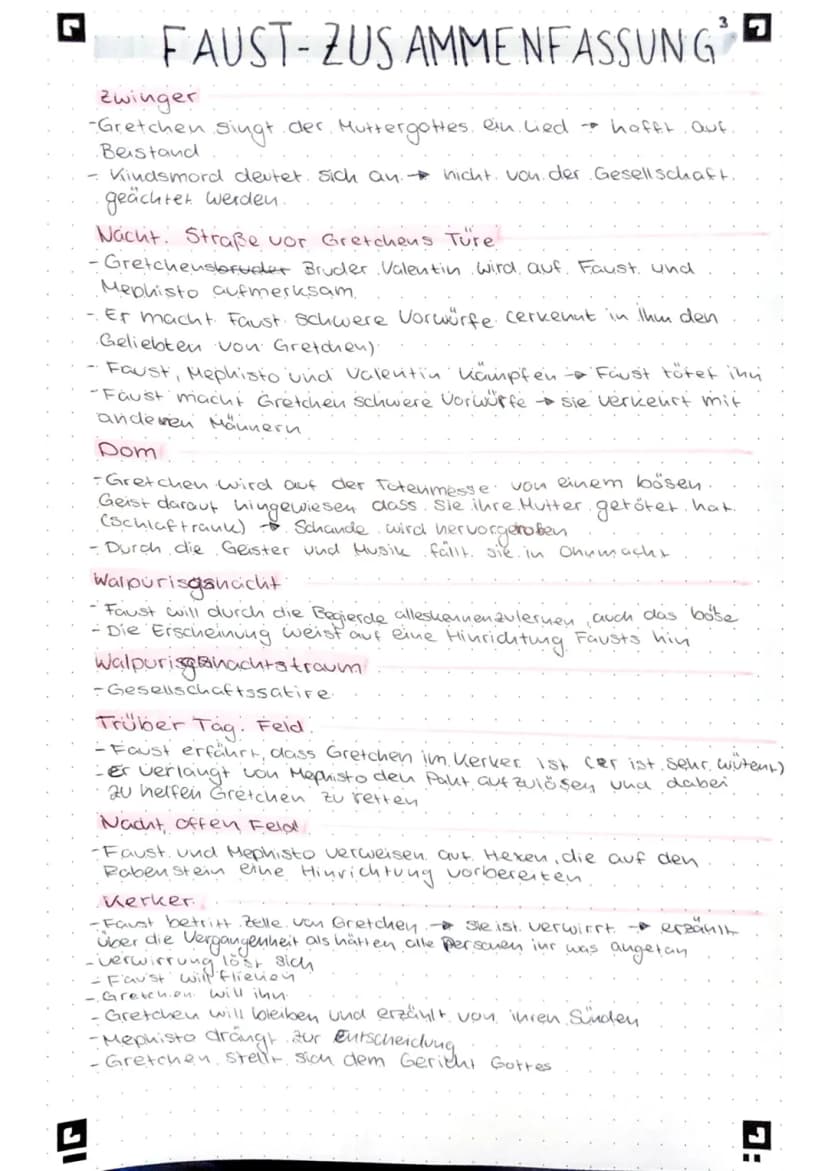 FAUST-ZUSAMMENFASSUNG 3
Zwinger
-Gretchen singt der Muttergottes ein Lied → hofft auf
Beistand
- Kindsmord deutet sich an → nicht von der Gesellschaft
geächtet werden
Nacht. Straße vor Gretchens Türe
- Gretchensbruder Bruder Valentin wird auf Faust und
Mephisto aufmerksam
- Er macht Faust schwere Vorwürfe (erkennt in ihm den
Geliebten von Gretchen)
- Faust, Mephisto und Valentin kämpfen → Faust tötet ihn
- Faust macht Gretchen schwere Vorwürfe → sie verkehrt mit
anderen Männern
Dom
- Gretchen wird auf der Totenmesse von einem bösen
Geist darauf hingewiesen dass sie ihre Mutter getötet hat
(Schlaftrank) → Schande wird hervorgehoben
- Durch die Geister und Musik fällt sie in Ohnmacht
Walpurisgsnacht
- Faust will durch die Begierde alleskennenzulernen, auch das böse
- Die Erscheinung weist auf eine Hinrichtung Fausts hin
Walpurisgsnachtstraum
- Gesellschaftssatire
Trüber Tag. Feld
- Faust erfährt, dass Gretchen im Kerker ist (er ist sehr wütent)
- er verlangt von Mephisto den Pakt aufzulösen und dabei
zu helfen Gretchen zu retten
Nacht, offen Feld
- Faust und Mephisto verweisen auf Hexen, die auf den
Rabenstein eine Hinrichtung vorbereiten
Kerker
- Faust betritt Zelle von Gretchen → sie ist verwirrt → erzählt
über die Vergangenheit als hätten alle Personen ihr was angetan
- Verwirrung löst sich
- Faust will fliehen
- Gretchen will ihn
- Gretchen will bleiben und erzählt von ihren Sünden
- Mephisto drängt zur Entscheidung
- Gretchen stellt sich dem Gericht Gottes